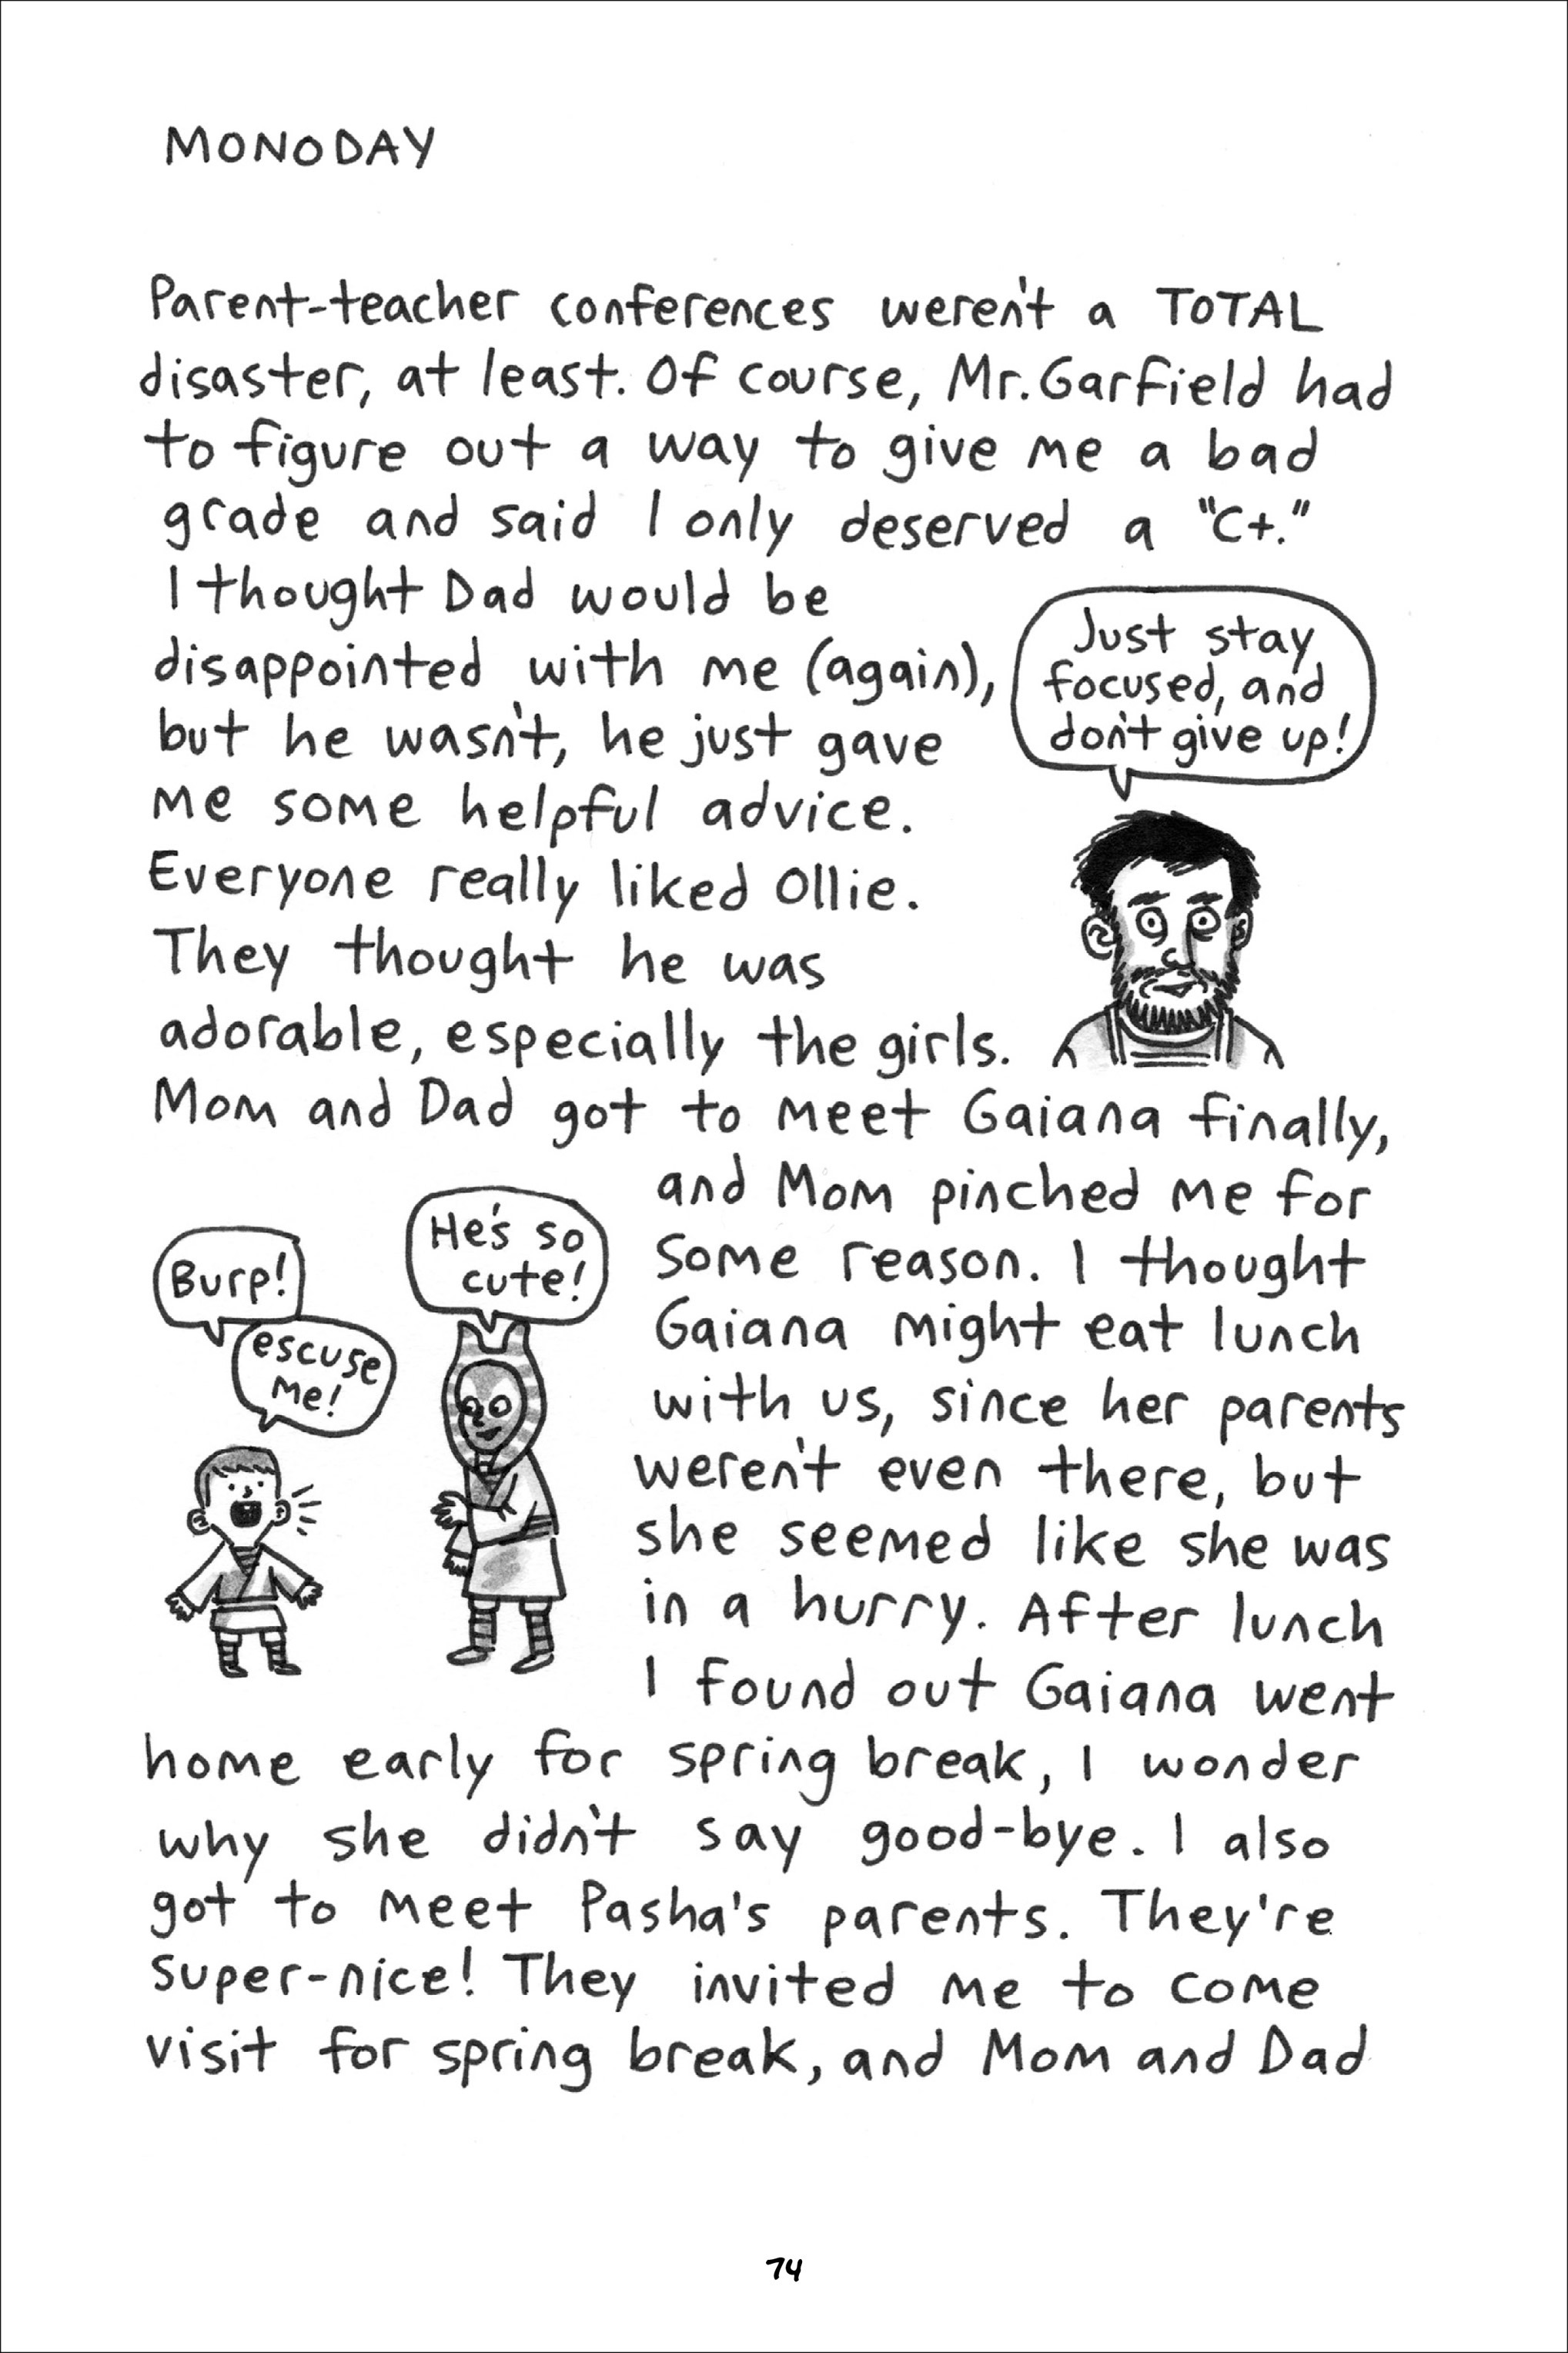 MONODAY
Parent-teacher conferences weren't a TOTAL
disaster, at least. Of course, Mr. Garfield had
to figure out a way to give me a bad
grade and said I only deserved a "C+."
I thought Dad would be
disappointed with me (again),
but he wasn't, he just gave
me some helpful advice.
Just stay
focused, and
don't give up!
Everyone really liked Ollie.
They thought he was
adorable, especially the girls.
Mom and Dad got to meet Gaiana finally,
and Mom pinched me for
some reason. I thought
Gaiana might eat lunch
with us, since her parents
weren't even there, but
she seemed like she was
in a hurry. After lunch
I found out Gaiana went
Burp!
escuse
me!
He's so
cute!
home early for spring break, I wonder
why she didn't say good-bye. I also
got to meet Pasha's parents. They're
super-nice! They invited me to come
visit for spring break, and Mom and Dad
74